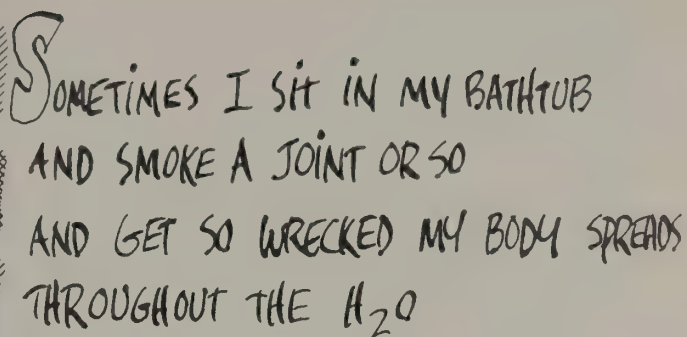 SOMETIMES I SIT IN MY BATHTUB
AND SMOKE A JOINT OR SO
AND GET SO WRECKED MY BODY SPREADS
THROUGHOUT THE H₂O